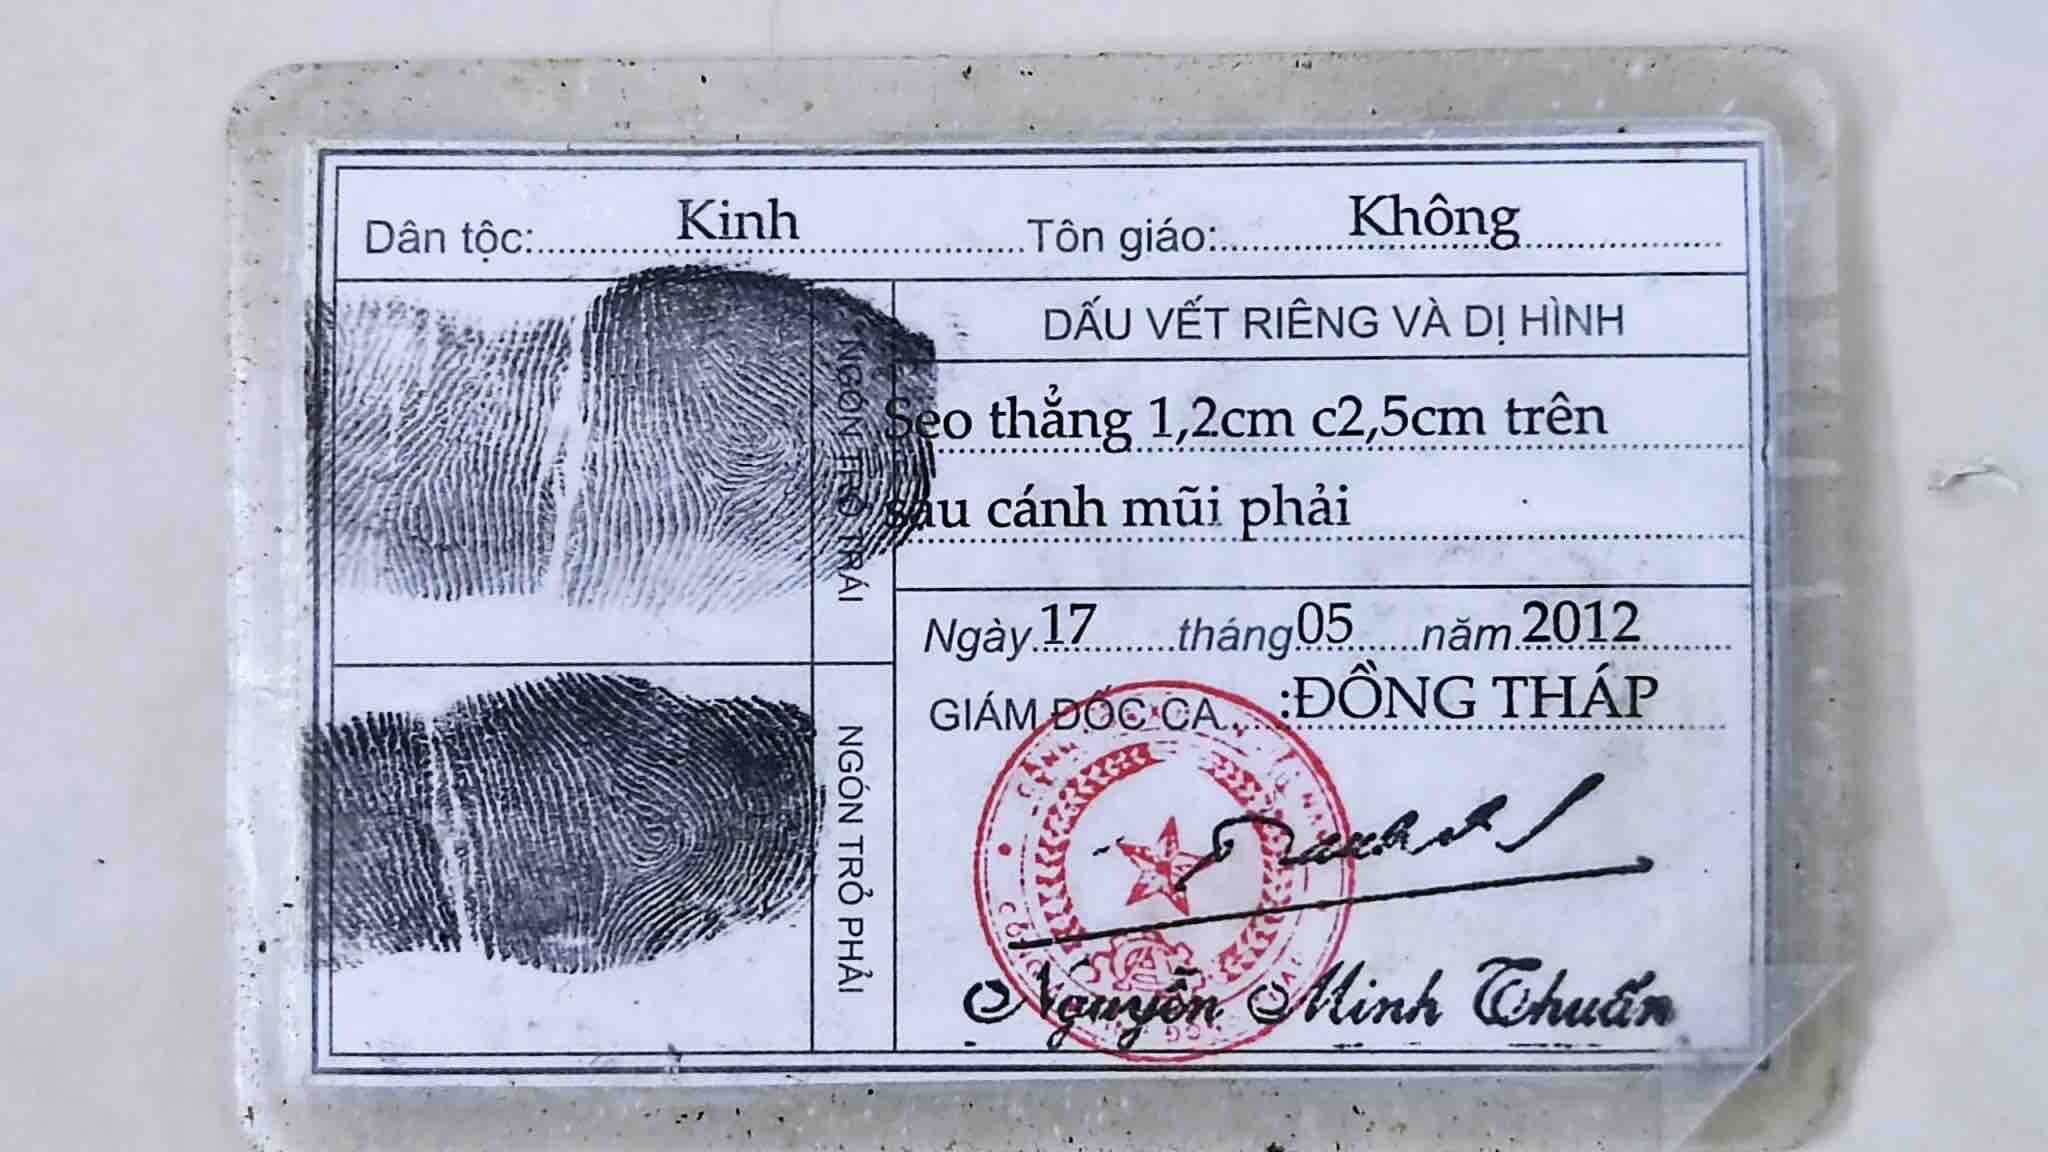 Dân tộc: Kinh Tôn giáo: Không
NGÓN TRỎ TRÁI
DẤU VẾT RIÊNG VÀ DỊ HÌNH
Sẹo thẳng 1,2cm c2,5cm trên
sau cánh mũi phải
Ngày 17 tháng 05 năm 2012
GIÁM ĐỐC CA :ĐỒNG THÁP
NGÓN TRỎ PHẢI
Nguyễn Minh Thuấn